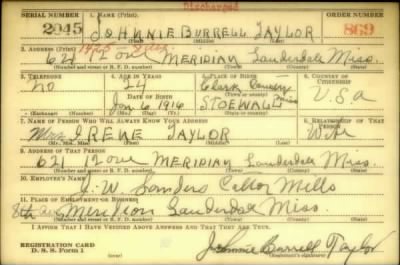 Discharged
SERIAL NUMBER 1. NAME (Print) ORDER NUMBER
2045 JOHNNIE BURRELL TAYLOR 869
2. ADDRESS (Print) 1925 -
621 MERIDIAN Lauderdale Miss.
(Number and street or R. F. D. number) (Town) (County) (State)
3. TELEPHONE 4. AGE IN YEARS 5. PLACE OF BIRTH 6. COUNTRY OF CITIZENSHIP
no 24 Clark County Miss
DATE OF BIRTH
Jan 6 1916 STOEWALL U.S.a
7. NAME OF PERSON WHO WILL ALWAYS KNOW YOUR ADDRESS 8. RELATIONSHIP OF THAT PERSON
Mrs IRENE TAYLOR Wife
(Mr., Mrs., Miss) (First) (Middle) (Last)
9. ADDRESS OF THAT PERSON
621 MERIDIAN Lauderdale Miss.
(Number and street or R. F. D. number) (Town) (County) (State)
10. EMPLOYER'S NAME
J. W. Sanders Cotton Mills
11. PLACE OF EMPLOYMENT OR BUSINESS
8th ave Meridian Lauderdale Miss
(Number and street or R. F. D. number) (Town) (County) (State)
I AFFIRM THAT I HAVE VERIFIED ABOVE ANSWERS AND THAT THEY ARE TRUE.
REGISTRATION CARD
D. S. S. Form 1
Johnnie Burrell Taylor
(Registrant's signature)